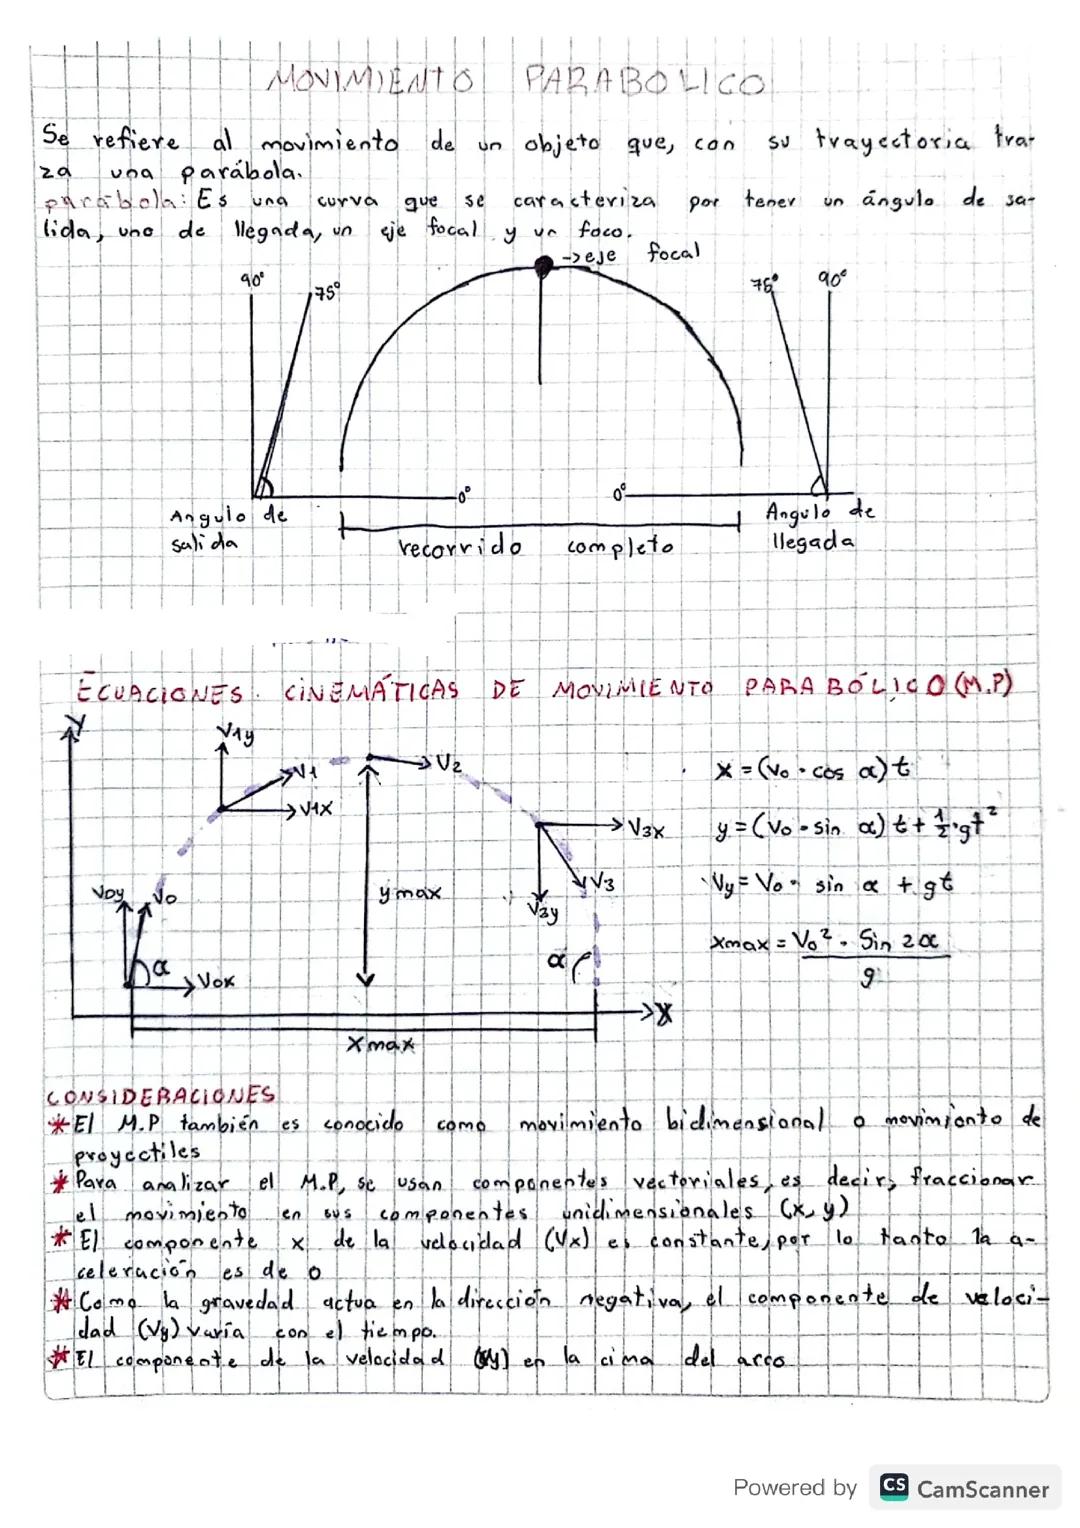 MOVIMIENTO PARABOLICO
Se refiere al movimiento de un objeto que, con su trayectoria tra-
za una parábola.
parábola: Es una curva que se caracteriza por tener un ángulo de sa-
lida, uno de llegada, un eje focal y un foco.
->eje focal
90° 75° 75° 90°
0° 0°
Angulo de
salida
recorrido completo
Angulo de
llegada
ECUACIONES. CINEMÁTICAS DE MOVIMIENTO PARABÓLICO (M.P)
Y
V1y
V1
V1x
V2
V3x
V3
V3y
Voy
Vo
α
Vox
ymax
α
X
Xmax
x = (Vo · cos α) t
y = (Vo · sin α) t + 1/2 · gt²
Vy = Vo · sin α + gt
Xmax = Vo² · Sin 2α
g
CONSIDERACIONES
*El M.P también es conocido como movimiento bidimensional o movimiento de
proyectiles
*Para analizar el M.P, se usan componentes vectoriales, es decir, fraccionar
el movimiento en sus componentes unidimensionales (x, y)
*El componente x de la velocidad (Vx) es constante, por lo tanto la a-
celeración es de 0
*Como la gravedad actua en la dirección negativa, el componente de veloci-
dad (Vy) varía con el tiempo.
*El componente de la velocidad (Vy) en la cima del arco
Powered by CS CamScanner